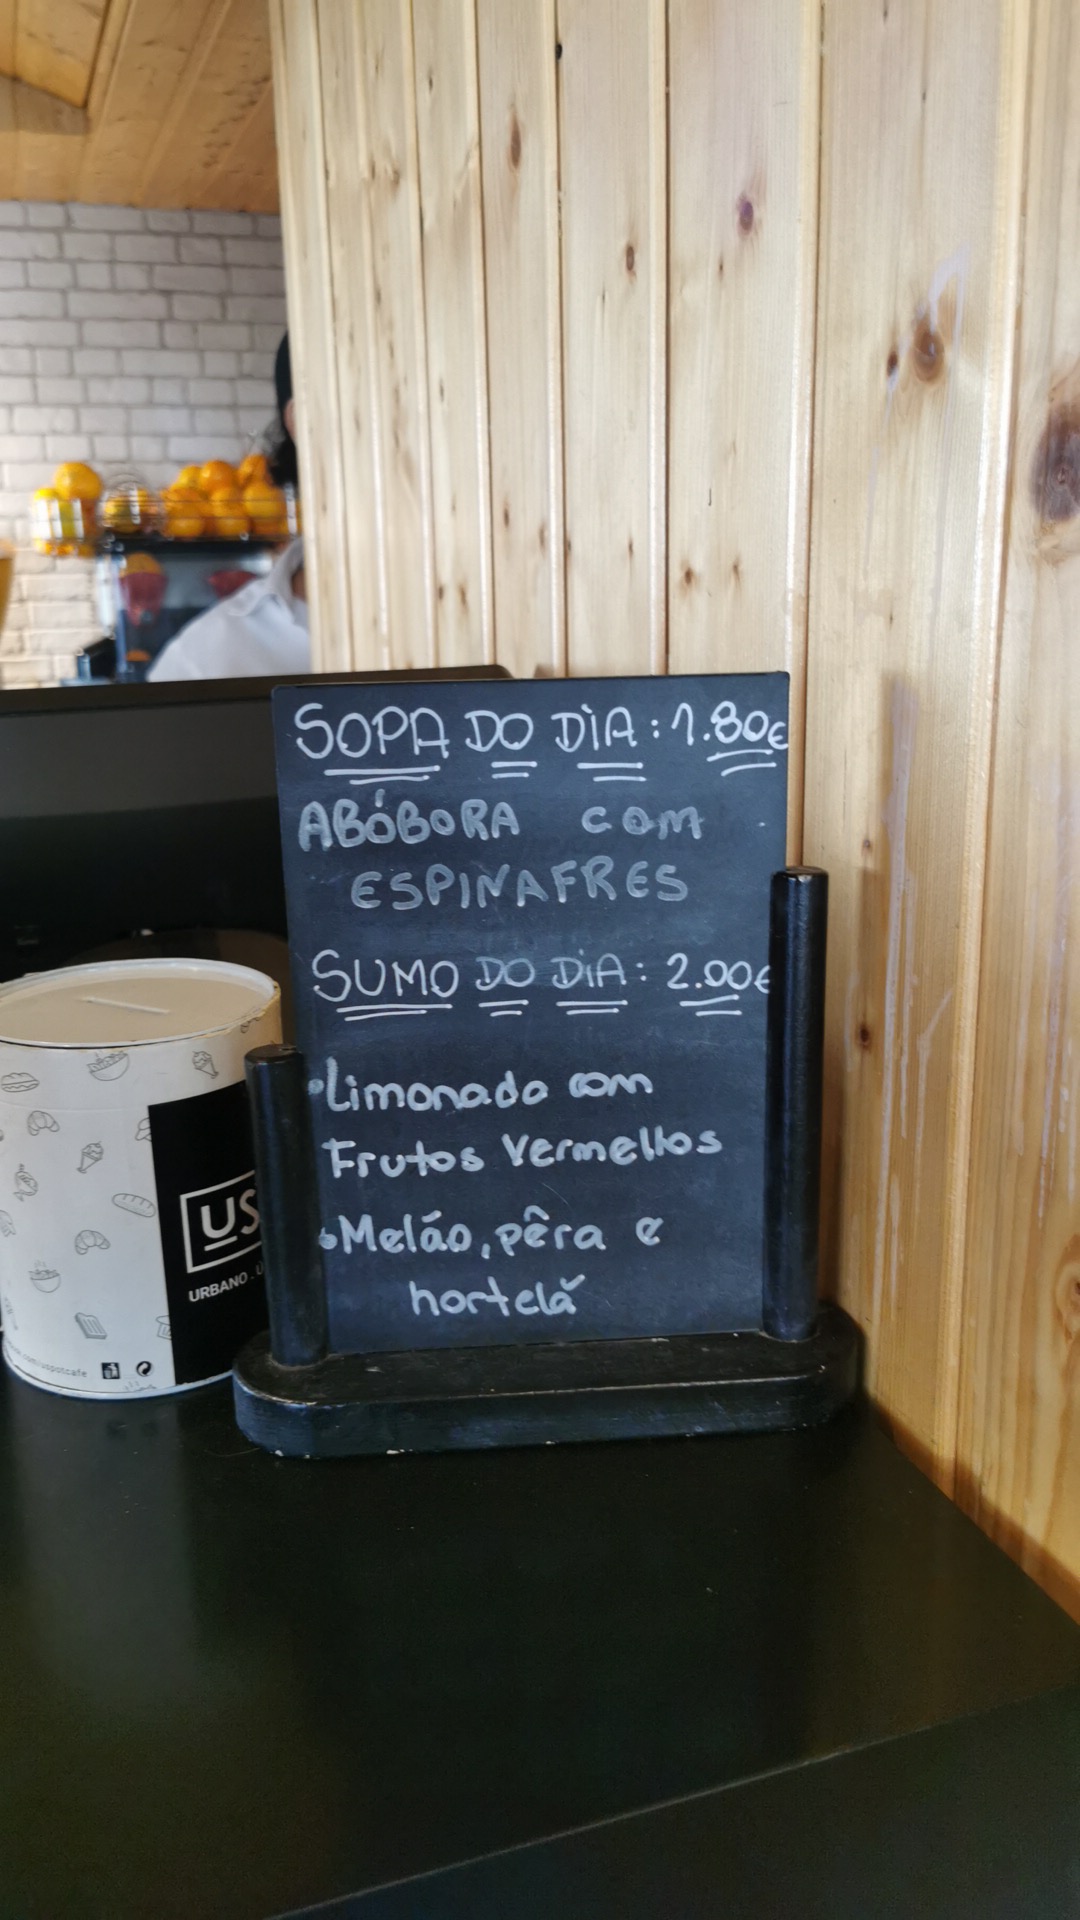 SOPA DO DIA: 1.80€
ABÓBORA COM
ESPINAFRES
SUMO DO DIA: 2.00€
•Limonada com
Frutos Vermelhos
•Melão, pêra e
hortelã
US
URBANO . Ú
.com/uspotcafe